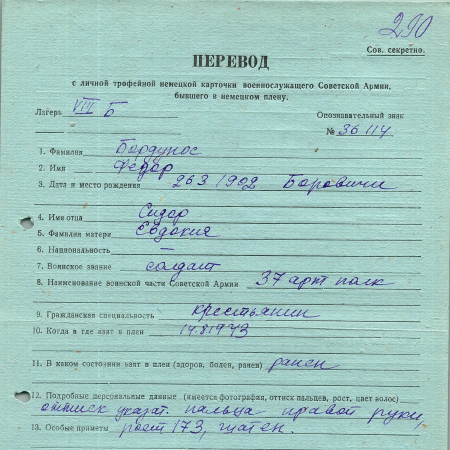 290
Сов. секретно.
ПЕРЕВОД
с личной трофейной немецкой карточки военнослужащего Советской Армии,
бывшего в немецком плену.
Лагерь VIII Б
Опознавательный знак
№ 36114
1. Фамилия Бордунос
2. Имя Федор
3. Дата и место рождения 263/1902 Боровичи
4. Имя отца Сидор
5. Фамилия матери Евдокия
6. Национальность —
7. Воинское звание солдат
8. Наименование воинской части Советской Армии 37 арт полк
9. Гражданская специальность крестьянин
10. Когда и где взят в плен 14.8.1943
11. В каком состоянии взят в плен (здоров, болен, ранен) ранен
12. Подробные персональные данные (имеется фотография, оттиск пальцев, рост, цвет волос)
оттиск указат. пальца правой руки,
13. Особые приметы рост 173, шатен.